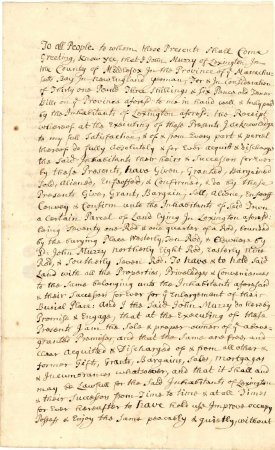 To all People to whom these Presents Shall Come
Greeting, Know yee, that I John Murry of Lexington In
the County of Middlesex In the Province of ye Massachu
setts Bay in New England yeoman; For & In Consideration
of Thirty one Pound Three Shillings & Six Pence and Tenor
Bills on ye Province aforesd to me in hand well & truly paid
by the Inhabitants of Lexington aforesd the Receipt
whereof at the Executing of these Presents I acknowledge
to my full Satisfaction, & of & from Every part & parcel
thereof do fully Absolutely & for Ever acquit & Discharge
the Said Inhabitants their heirs & Successors for ever
by these Presents, have Given, Granted, Bargained
Sold, Aliened, Enfeoffed, & Confirmed, & Do by these
Presents Give, Grant, Bargain, Sell, Aliene, Enfeoff
Convey & Confirm unto the Inhabitants of Said Town
a Certain Parcel of Land Lying In Lexington aforesd
being Twenty one Rod & one quarter of a Rod, bounded
by the burying Place Westerly Rod, & Elsewhere by
Sd John Murry northerly Eight Rod, Easterly Three
Rod, & Southerly Seven Rod. To have & to hold Said
Land with all the Properties, Priviledges & Conveniences
to the Same belonging unto the Inhabitants aforesaid
& their Successors for ever for ye Enlargement of their
Burial Place. And I the Said John Murry do hereby
Promise & Engage, that at the Executing of these
Present I am the Sole & proper owner of ye above
granted Premises, and that the Same are free, and
Clear Acquitted & Discharged of & from all other &
former Gifts, Grants, Bargains, Sales, Mortgages
& Incumbrances whatsoever, and that it Shall and
may be Lawfull for the Said Inhabitants of Lexington
& their Successors from Time to time & at all Times
for Ever hereafter to have hold use Improve occupy
Possess & Enjoy the Same peaceably & quietly without